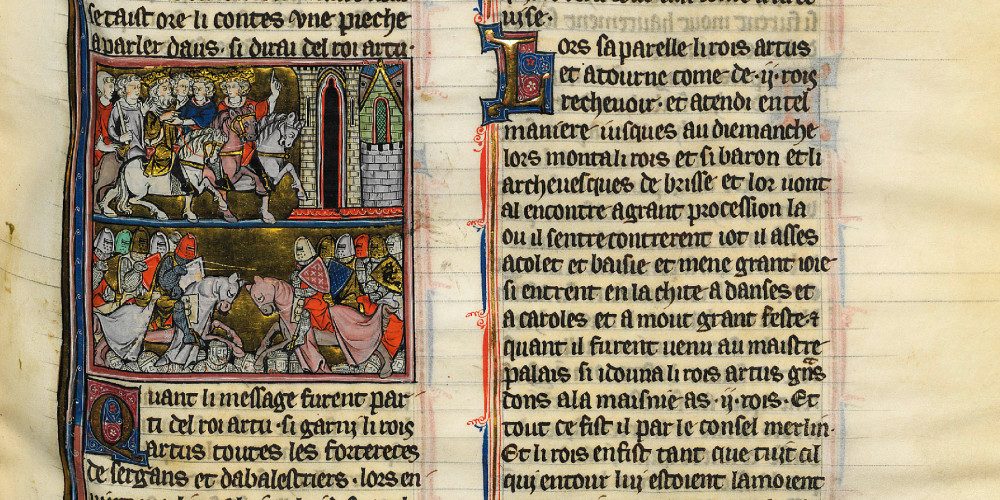 se taist ore li contes vne pieche
a parler daus · si dirai del roi artu ·
Quant li message furent par
ti del roi artu · si garni li rois
artus toutes les fortereces
de sergans et dabalestiers · lors en
uise ·
Lors saparelle li rois artus
et atourne come de · ij · rois
recheuoir · et atendi en tel
maniere iusques au diemanche
lors monta li rois et si baron et li
archeuesques de brisse et lor uont
al encontre a grant procession la
ou il sentrecontrerent iot il asses
acolet et baisie et mene grant ioie
si entrent en la chite a danses et
a caroles et a mout grant feste ⁊
quant il furent uenu au maistre
palais si i douna li rois artus gns
dons a la maisnie as · ij · rois · Et
tout ce fist il par le consel merlin ·
Et li rois en fist tant que tuit cil
qui entour lui estoient lamoient